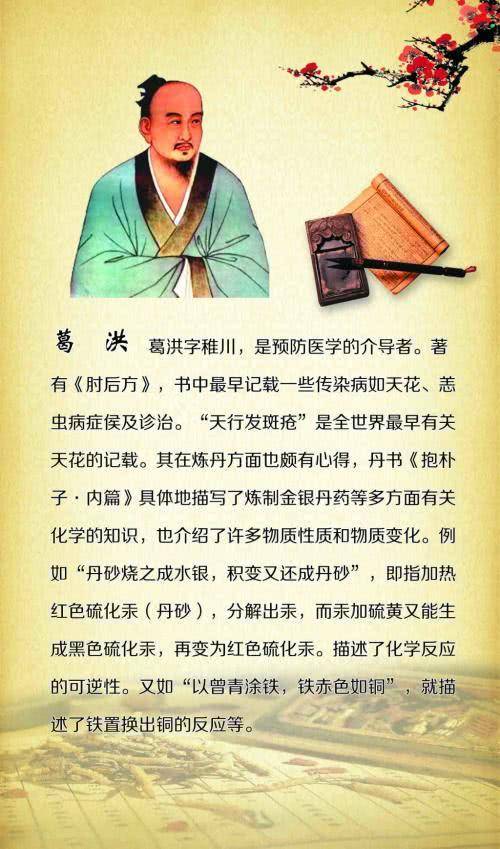 葛 洪 葛洪字稚川，是预防医学的介导者。著
有《肘后方》，书中最早记载一些传染病如天花、恙
虫病症侯及诊治。“天行发斑疮”是全世界最早有关
天花的记载。其在炼丹方面也颇有心得，丹书《抱朴
子·内篇》具体地描写了炼制金银丹药等多方面有关
化学的知识，也介绍了许多物质性质和物质变化。例
如“丹砂烧之成水银，积变又还成丹砂”，即指加热
红色硫化汞（丹砂），分解出汞，而汞加硫黄又能生
成黑色硫化汞，再变为红色硫化汞。描述了化学反应
的可逆性。又如“以曾青涂铁，铁赤色如铜”，就描
述了铁置换出铜的反应等。